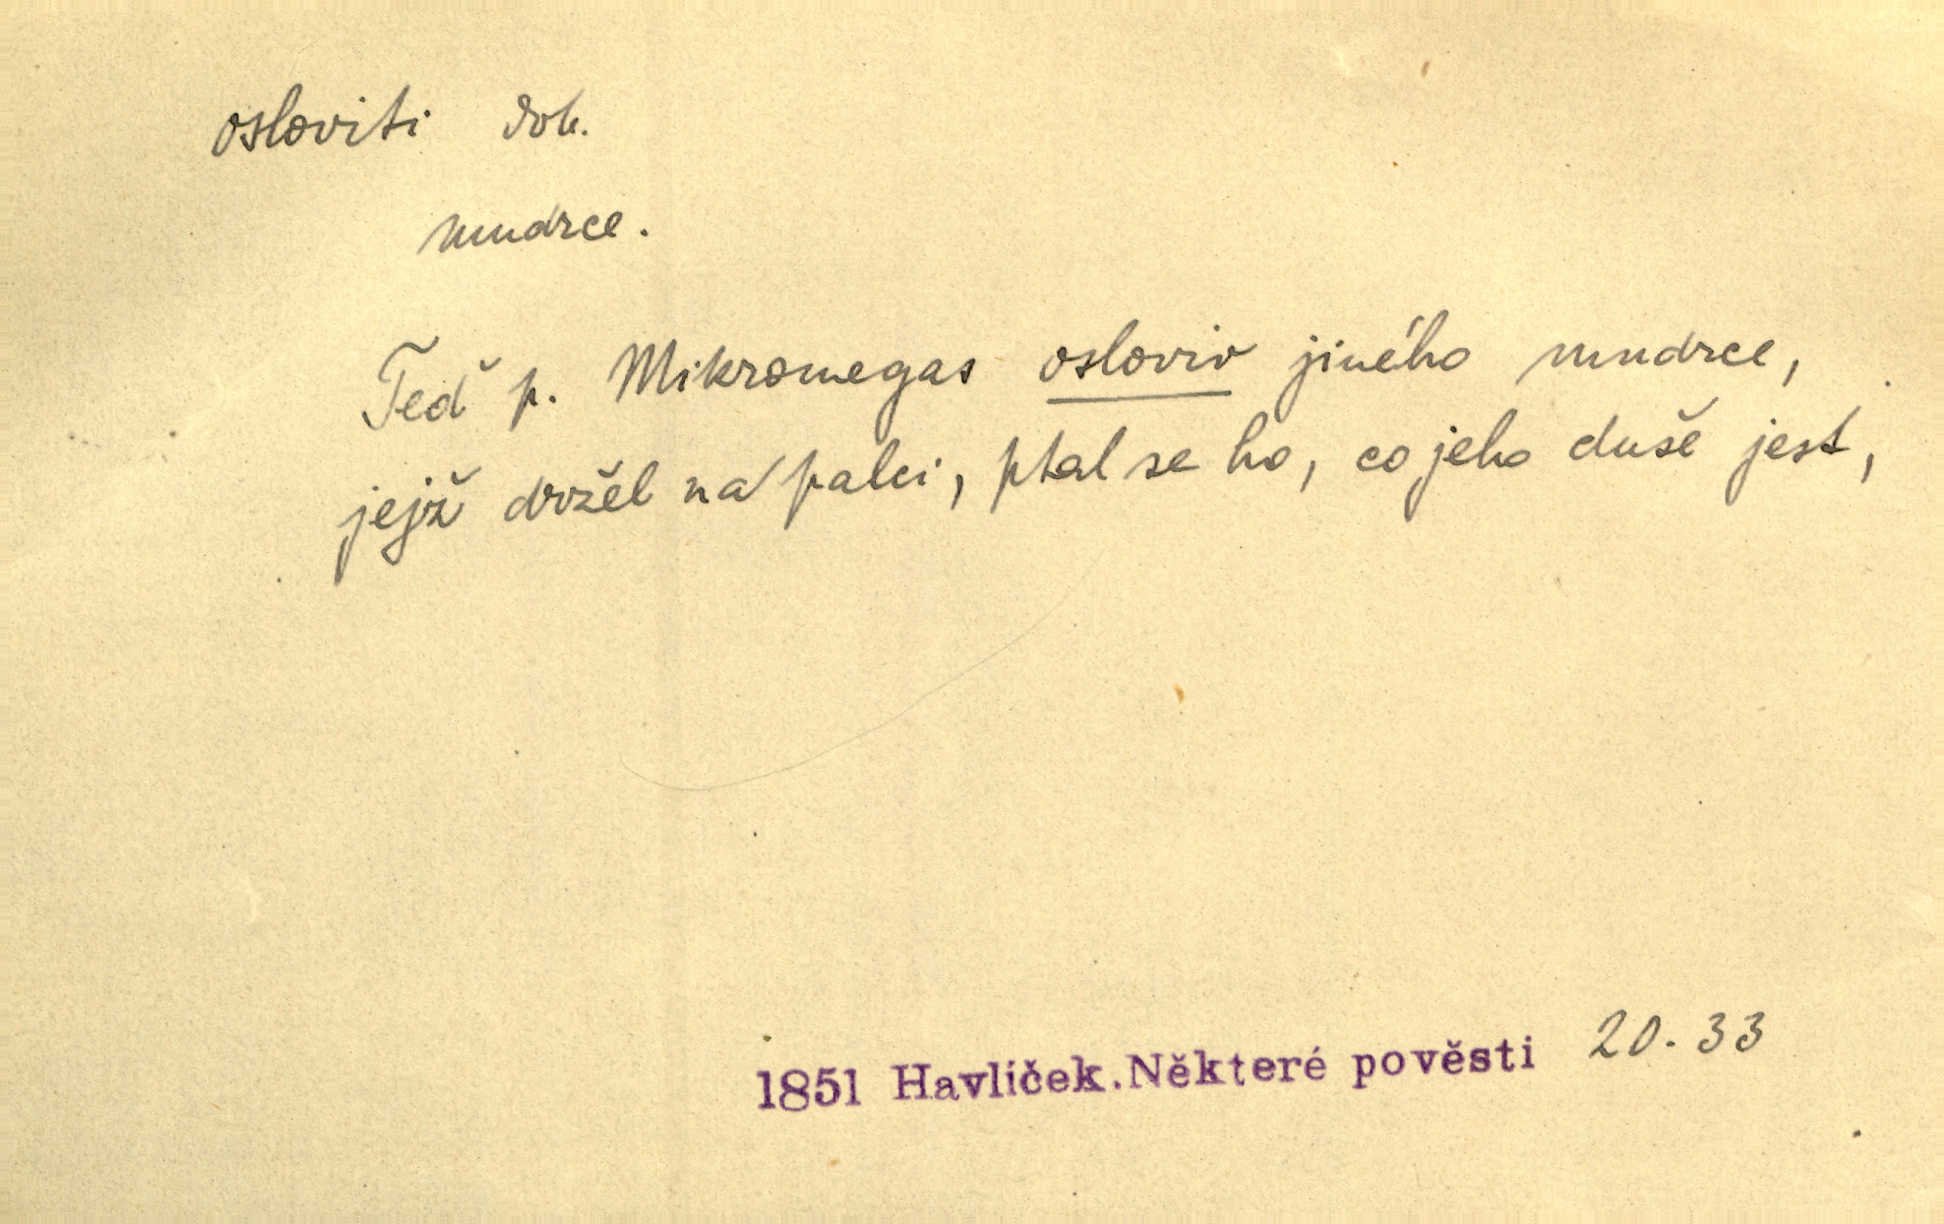 osloviti dok.
mudrce.
Teď p. Mikromegas osloviv jiného mudrce,
jejž držel na palci, ptal se ho, co jeho duše jest,
1851 Havlíček. Některé pověsti 20. 33